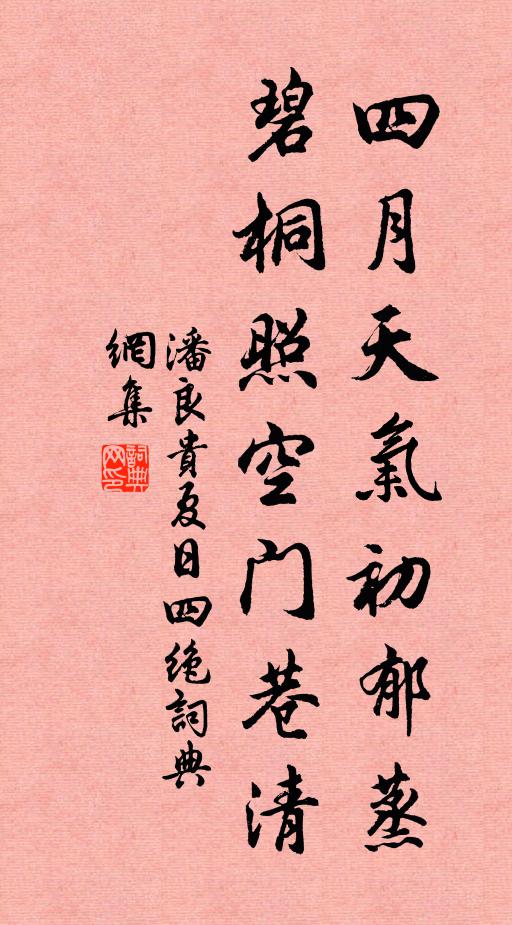 四月天氣初郁蒸
碧桐照空门巷清
潘良貴夏日四绝詞典
網集
詞典
网印